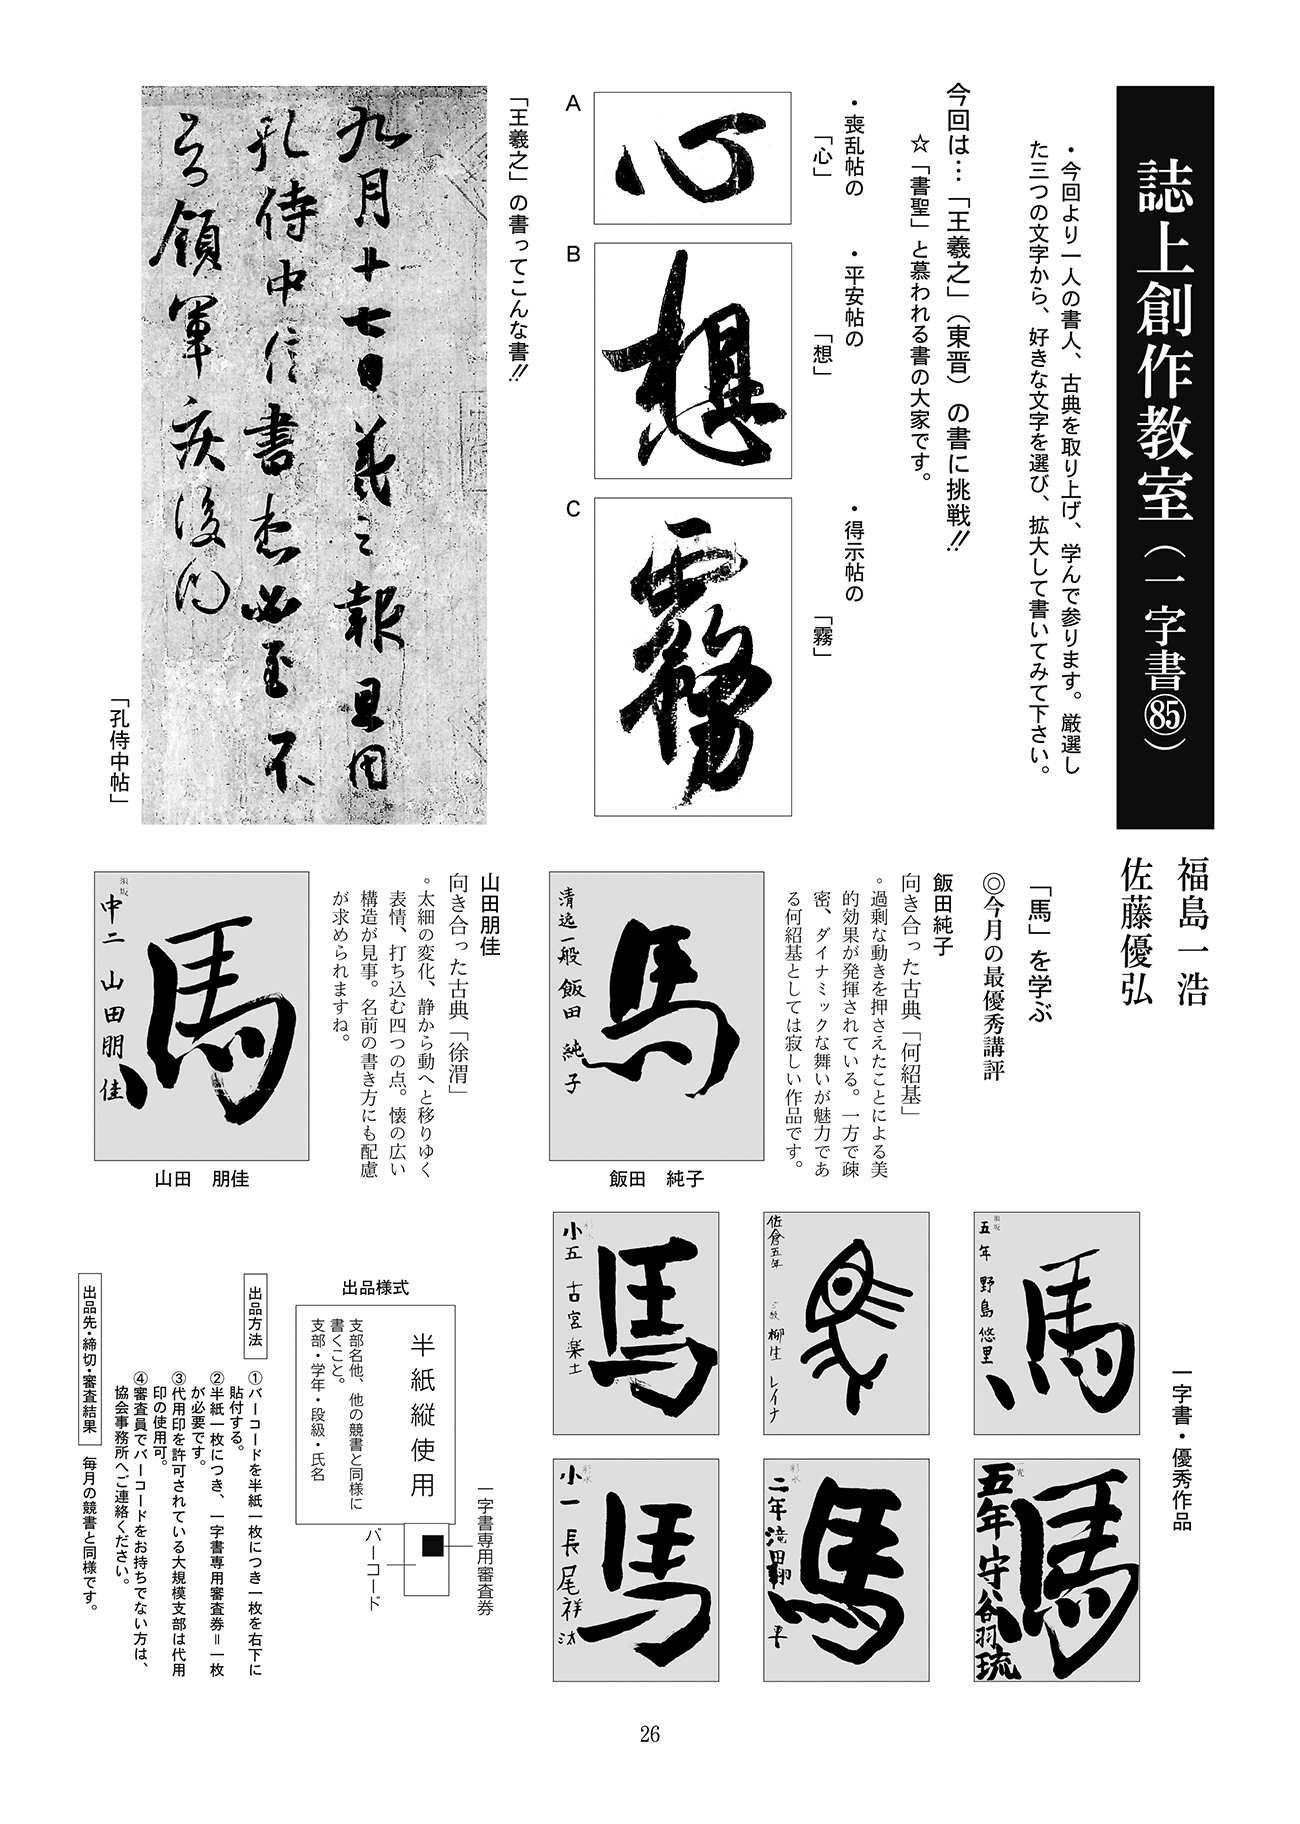 誌上創作教室（一字書㊽）
福島一浩
佐藤優弘
・今回より一人の書人、古典を取り上げ、学んで参ります。厳選し
た三つの文字から、好きな文字を選び、拡大して書いてみて下さい。
今回は…「王羲之」（東晋）の書に挑戦!!
☆「書聖」と慕われる書の大家です。
・喪乱帖の
「心」
・平安帖の
「想」
・得示帖の
「霧」
A
心
B
想
C
霧
「王羲之」の書ってこんな書!!
九月十七日羲之報且因
孔侍中信書想必至不
知領軍疾後問
「孔侍中帖」
「馬」を学ぶ
◎今月の最優秀講評
飯田純子
向き合った古典「何紹基」
。過剰な動きを押さえたことによる美
的効果が発揮されている。一方で疎
密、ダイナミックな舞いが魅力であ
る何紹基としては寂しい作品です。
馬
清逸一般 飯田 純子
飯田　純子
山田朋佳
向き合った古典「徐渭」
。太細の変化、静から動へと移りゆく
表情、打ち込む四つの点。懐の広い
構造が見事。名前の書き方にも配慮
が求められますね。
馬
須坂
中二 山田朋佳
山田　朋佳
一字書・優秀作品
馬
須坂
五年 野島悠里
佐倉五年
柳生 レイナ
馬
彩水
小五 古宮楽士
馬
五年 守谷羽琉
馬
彩水
二年 滝田翔平
馬
彩水
小一 長尾祥汰
出品様式
半紙縦使用
支部名他、他の競書と同様に
書くこと。
支部・学年・段級・氏名
一字書専用審査券
バーコード
出品方法
①バーコードを半紙一枚につき一枚を右下に
貼付する。
②半紙一枚につき、一字書専用審査券＝一枚
が必要です。
③代用印を許可されている大規模支部は代用
印の使用可。
④審査員でバーコードをお持ちでない方は、
協会事務所へご連絡ください。
出品先・締切・審査結果
毎月の競書と同様です。
26